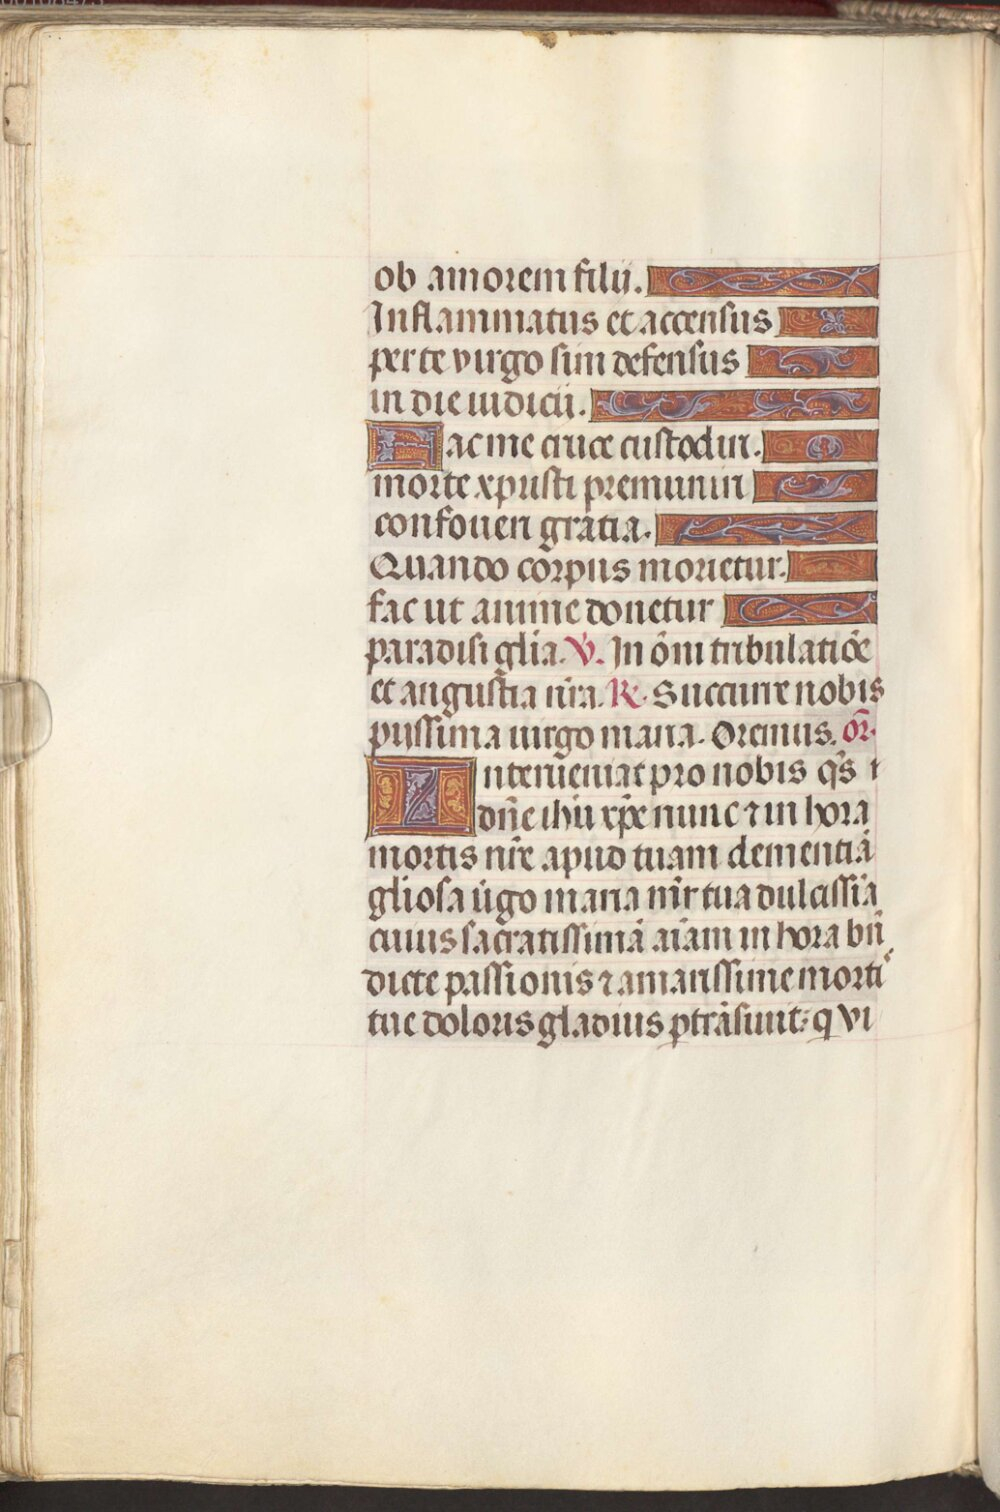 ob amorem filij.
Inflammatus et accensus
per te virgo sim defensus
in die iudicii.
Fac me cruce custodiri.
morte xpisti premuniri
confoueri gratia.
Quando corpus morietur.
fac ut anime donetur
paradisi glīa. V̄. In ōni tribulatiōe
et angustia nr̄a. R̄. Succurre nobis
pijssima uirgo maria. Oremus. or̄.
Interueniat pro nobis qs̄
dn̄e ihū xp̄e nunc ⁊ in hora
mortis nr̄e apud tuam clementiā
gliosa ūgo maria mr̄ tua dulcissīa
cuius sacratissimā aīam in hora bn̄
dicte passionis ⁊ amarissime mortis
tue doloris gladius ptrāsiuit: qui